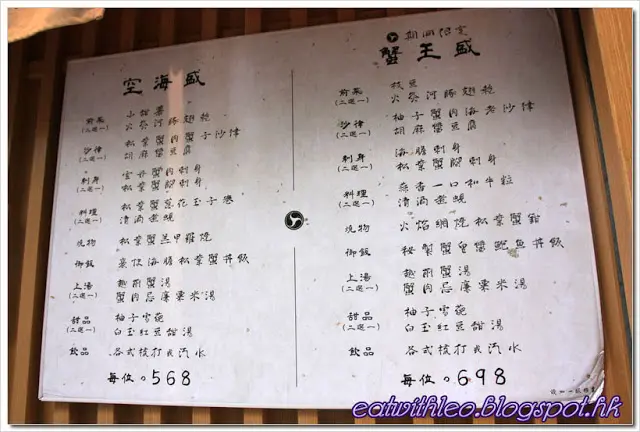 空海盛
前菜 小甜薯
(二選一) 火炙河豚翅乾
沙律 松葉蟹肉蟹子沙律
(二選一) 胡麻蟹豆腐
刺身 松葉蟹腳刺身
(二選一)
料理 松葉蟹蔥花玉子卷
(二選一) 清酒煮蜆
燒物 松葉蟹蓋甲羅燒
御飯 海膽松葉蟹丼飯
上湯 越前蟹湯
(二選一) 蟹肉忌廉粟米湯
甜品 柚子雪葩
(二選一) 白玉紅豆甜湯
飲品 各式梳打或汽水
每位。568
期間限定
蟹王盛
前菜 枝豆
(二選一) 火炙河豚翅乾
沙律 柚子蟹肉海老沙律
(二選一) 胡麻蟹豆腐
刺身 海膽刺身
(二選一) 松葉蟹腳刺身
料理 蒜香一口和牛粒
(二選一) 清酒煮蜆
燒物 火焰網燒松葉蟹鉗
御飯 秘製蟹皇醬鮑魚丼飯
上湯 越前蟹湯
(二選一) 蟹肉忌廉粟米湯
甜品 柚子雪葩
(二選一) 白玉紅豆甜湯
飲品 各式梳打或汽水
每位。698
設加一服務費
eatwithleo.blogspot.hk